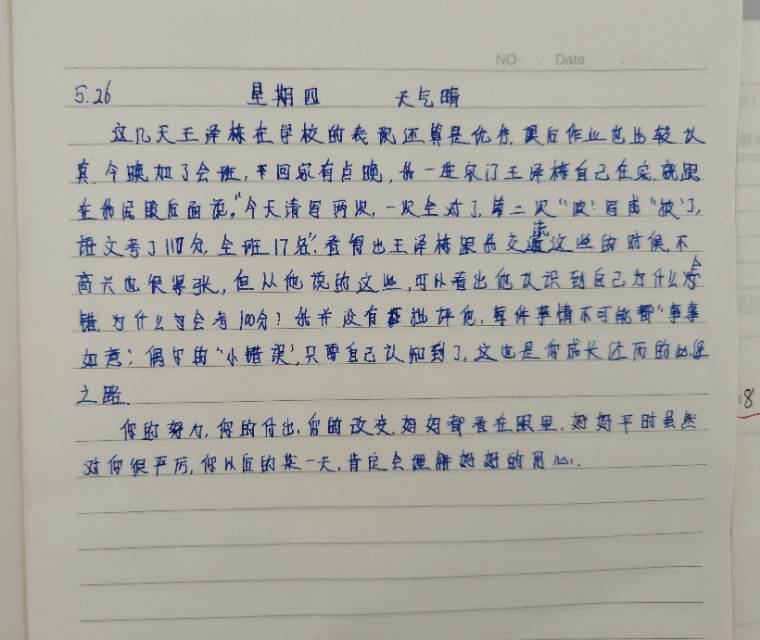 NO Date
5.26 星期四 天气晴
这几天王泽栋在学校的表现还算是优秀,课后作业也比较认
真,今晚加了会班,下回家有点晚,我一进家门王泽栋自己在家,就跟
在我屁股后面说,"今天请写两次,一次全对了,第二次"
语文考了 分,全班17名",看得出王泽栋跟我交流这些的时候,不
高兴也很紧张,但从他说的这些,可以看出他认识到自己为什么会
错,为什么 会考100分!我并没有批评他,每件事情不可能都"事事
如意;偶尔的"小错误",只要自己认知到了,这也是你成长 的必经
之路.
你的努力,你的付出,你的改变,妈妈都看在眼里,妈妈平时虽然
对你很严厉,你以后的某一天,肯定会理解妈妈的用心.
8